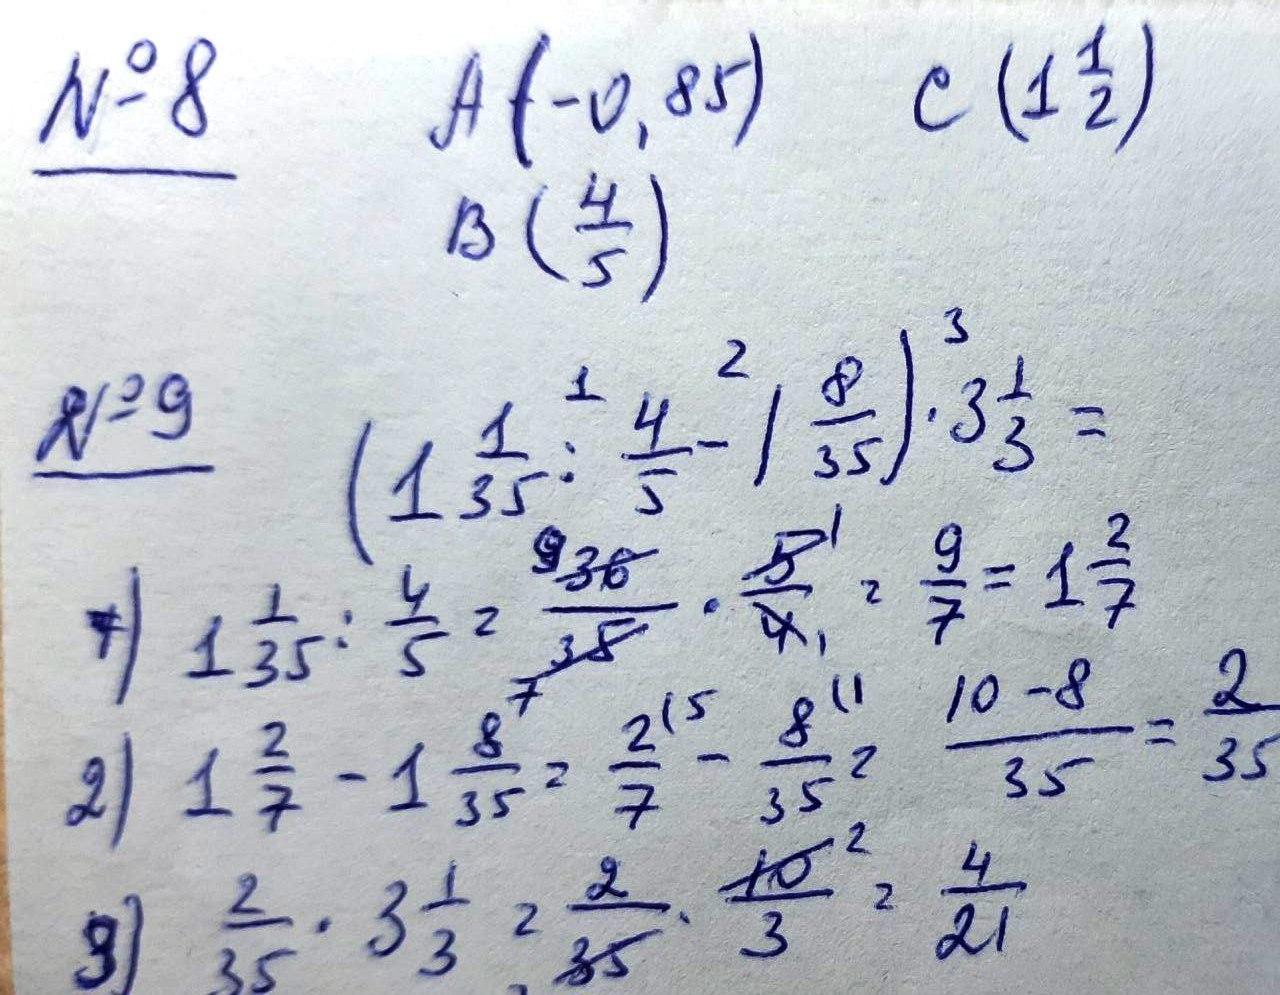 №8 A(-0,85) C(1 1/2)
B(4/5)
№9 (1 1/35 :¹ 4/5 -² 1 8/35) ·³ 3 1/3 =
1) 1 1/35 : 4/5 = 36/35 · 5/4 = 9/7 = 1 2/7
2) 1 2/7 - 1 8/35 = 2/7 - 8/35 = (10-8)/35 = 2/35
3) 2/35 · 3 1/3 = 2/35 · 10/3 = 4/21